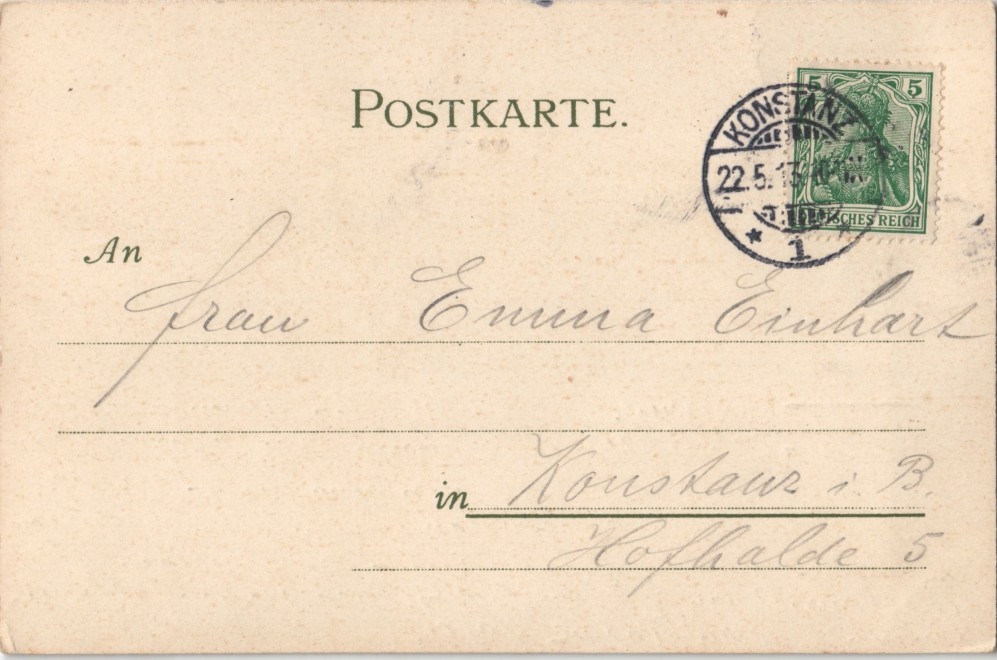 POSTKARTE.
5 5
KONSTANZ
22.5.13.
* 1 *
DEUTSCHES REICH
An
Frau Emma Einhart
in Konstanz i. B.
Hofhalde 5